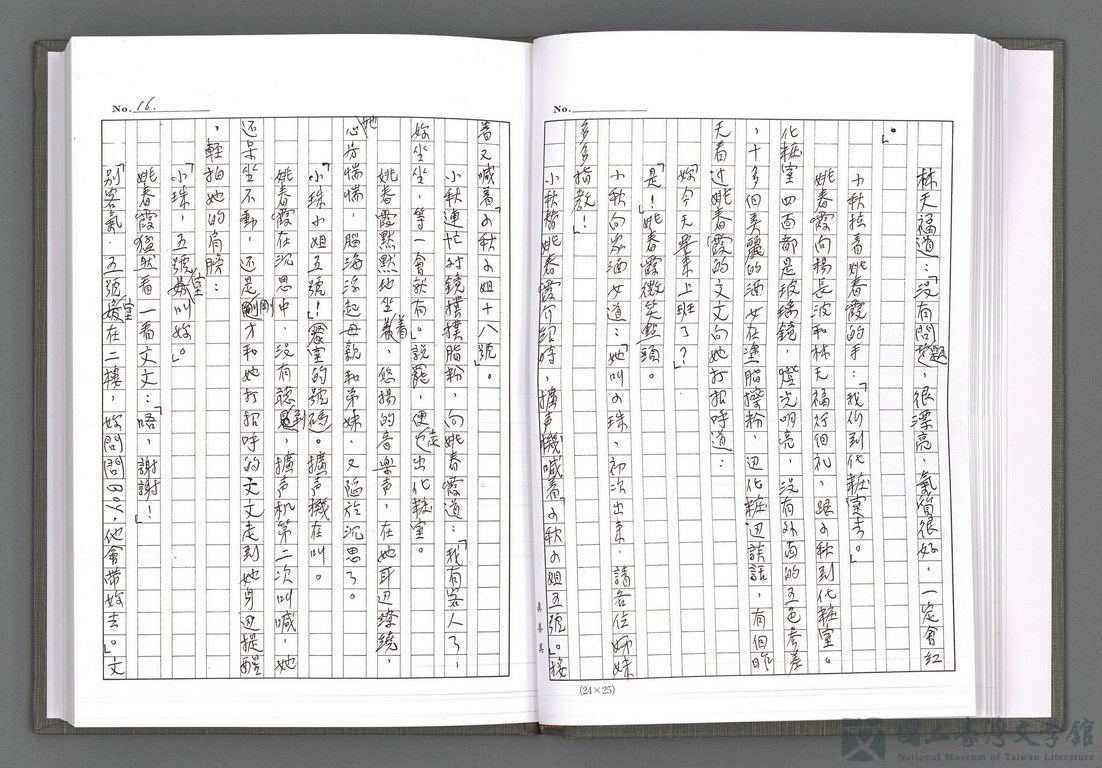 No.
林天福道：「沒有問題，很漂亮，氣質很好，一定會紅
。」
小秋拉着姚春霞的手：「我們到化粧室去。」
姚春霞向楊長波和林天福行個礼，跟小秋到化粧室。
化粧室四面都是玻璃鏡，燈光明亮，沒有外面的五色參差
，十多個美麗的酒女在塗脂擦粉，边化粧边談話，有個昨
天看过姚春霞的文文向她打招呼道：
「妳今天要來上班了？」
「是！」姚春霞微笑點頭。
小秋向眾酒女道：「她叫小珠，初次出來，請各位姊妹
多多指教！」
小秋替姚春霞介紹時，擴声機喊着「小秋小姐五號。」接
(24×25)
No. 16.
着又喊着「小秋小姐十八號」。
小秋連忙对鏡撲撲脂粉，向姚春霞道：「我有客人了，
妳坐坐，等一會就有。」說罷，便走出化粧室。
姚春霞默默地坐着，悠揚的音樂声，在她耳边繚繞，
她心旁惴惴，腦海浮起母親和弟妹，又陷於沉思了。
「小珠小姐五號！」的號碼。擴声機在叫。
姚春霞在沉思中，沒有聽到，擴声机第二次叫喊，她
还呆坐不動，还是剛才和她打招呼的文文走到她身边提醒
，輕拍她的肩膀：
「小珠，五號室叫妳。」
姚春霞猛然看一看文文：「唔，謝謝！」
「別客氣，五號室在二樓，妳問問BOY，他會帶妳去。」文
國立臺灣文學館
National Museum of Taiwan Literature